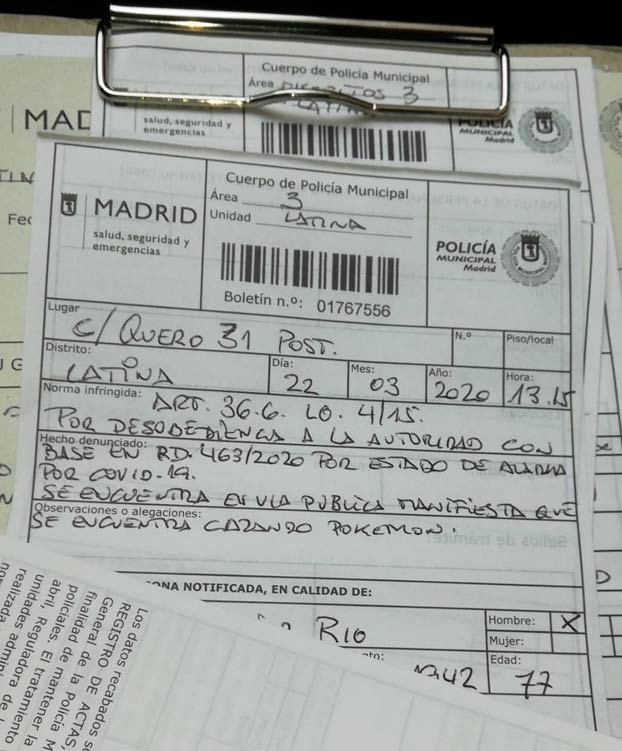 Cuerpo de Policía Municipal
Área DISTRITOS 3
LATINA
MAD
salud, seguridad y
emergencias
POLICÍA
MUNICIPAL
Madrid
Fec
MADRID
salud, seguridad y
emergencias
Cuerpo de Policía Municipal
Área 3
Unidad LATINA
Boletín n.º: 01767556
POLICÍA
MUNICIPAL
Madrid
Lugar
C/ QUERO 31 POST.
N.º
Piso/local
Distrito:
LATINA
Día:
22
Mes:
03
Año:
2020
Hora:
13.15
Norma infringida:
ART. 36.6. LO. 4/15.
POR DESOBEDIENCIA A LA AUTORIDAD CON
Hecho denunciado:
BASE EN RD. 463/2020 POR ESTADO DE ALARMA
POR COVID-19.
SE ENCUENTRA EN VIA PUBLICA MANIFIESTA QUE
Observaciones o alegaciones:
SE ENCUENTRA CAZANDO POKEMON.
ONA NOTIFICADA, EN CALIDAD DE:
RIO
Hombre: X
Mujer:
nto:
1942
Edad:
77
Los datos recabados s
REGISTRO DE ACTAS,
General de la Policía M
finalidad de mantener la
policiales. El tratamiento
abril, Reguladora de
unidades admini
realizada